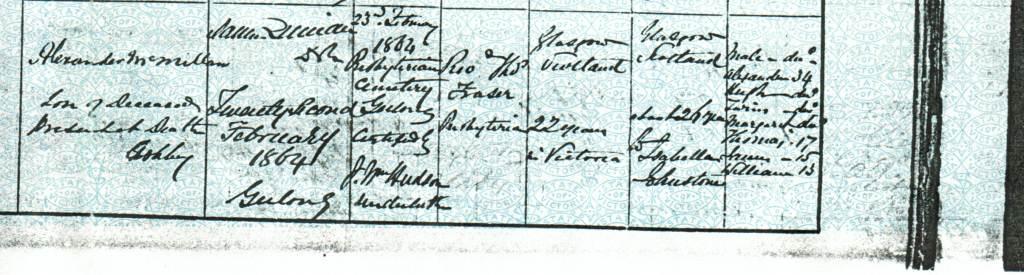 Alexander McMillan
Son of Deceased
Present at Death
Ashby
James Duncan
Twenty Second
February
1864
Geelong
23rd February
1864
Presbyterian
Cemetery
Geelong
Certified by
J. Wm Hudson
Undertaker
Revd Thos
Fraser
Presbyterian
Glasgow
Scotland
22 years
in Victoria
Glasgow
Scotland
about 26 years
to
Isabella
Johnstone
Male - ded
Alexander 34
Hugh - ded
Twins - ded
Margaret ded
Thomas 17
James - 15
William 13